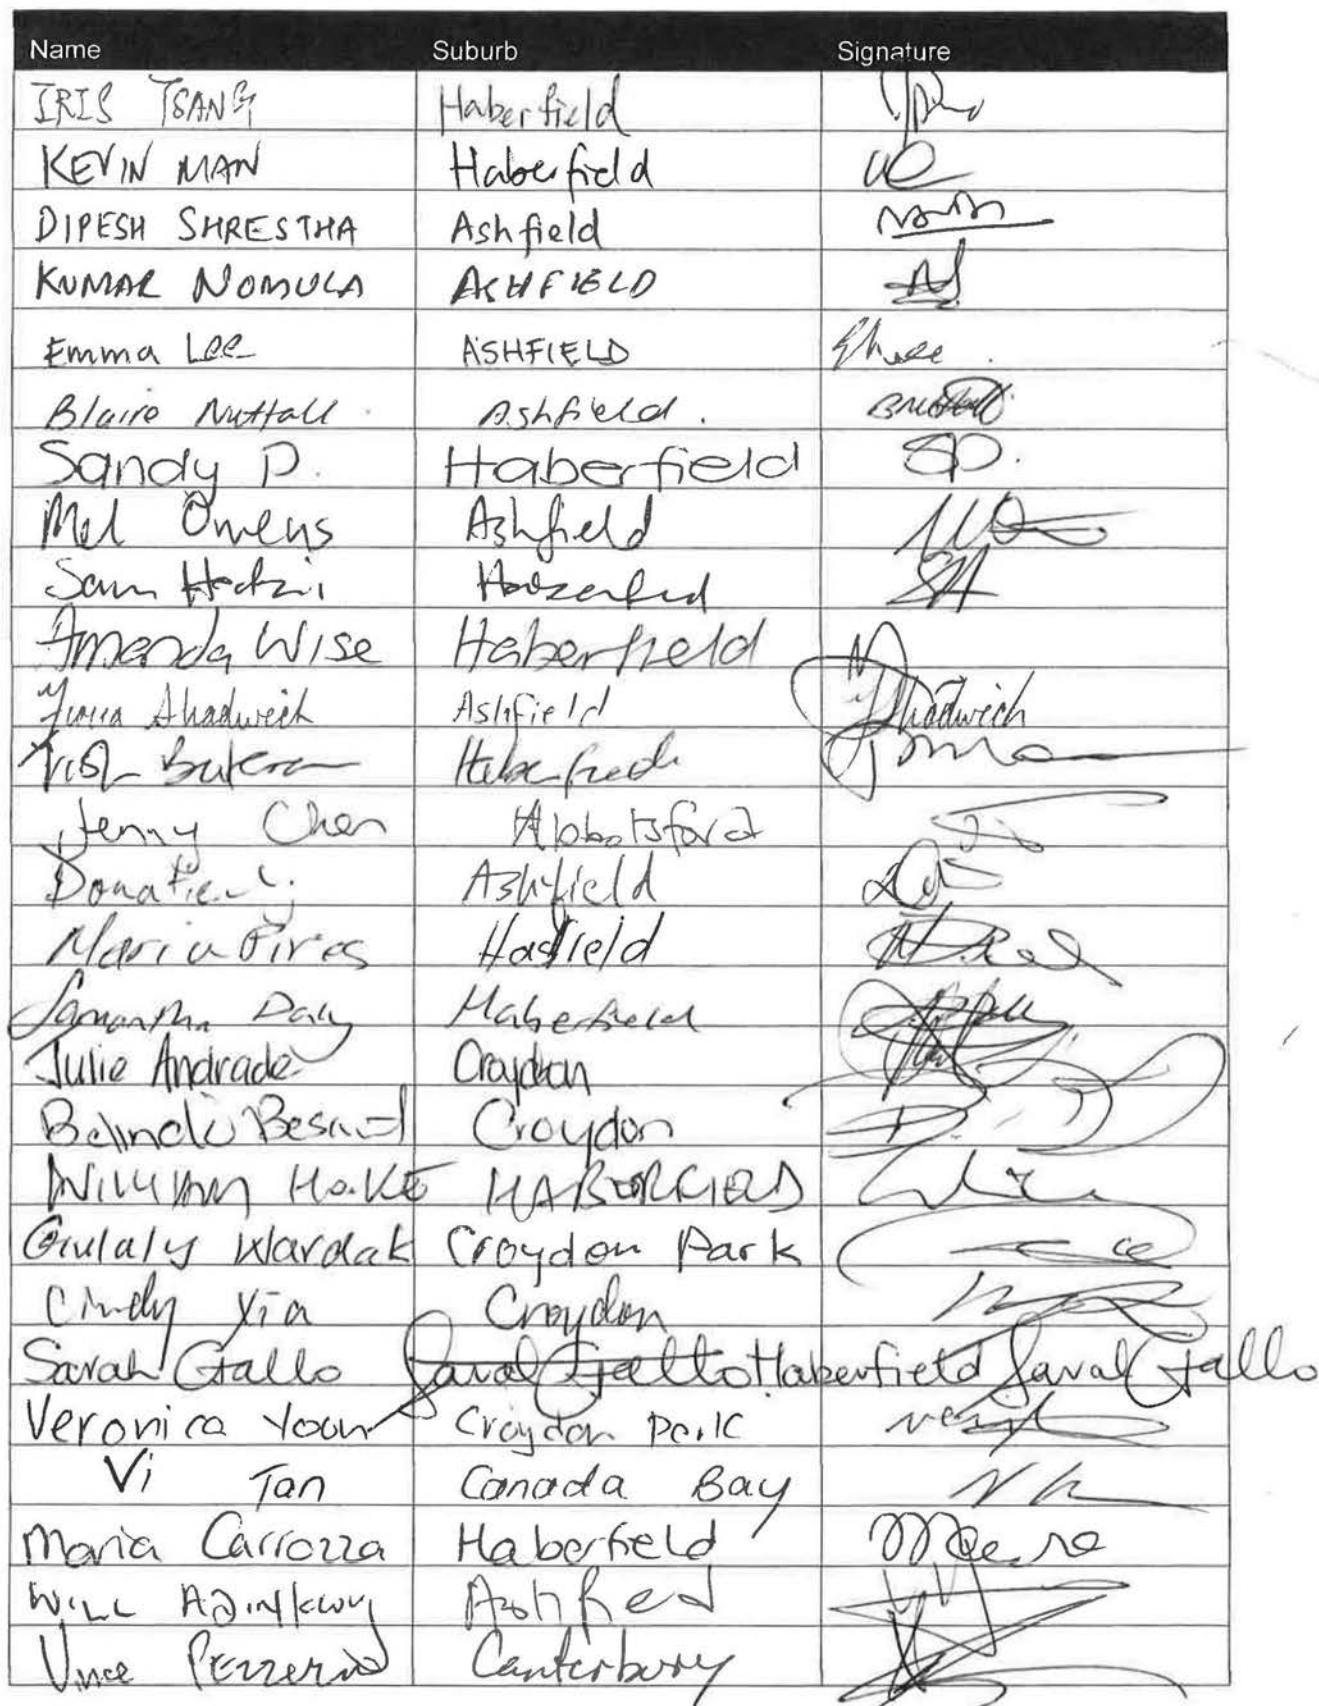 Name Suburb Signature
IRIS TSANG Haberfield
KEVIN MAN Haberfield
DIPESH SHRESTHA Ashfield
KUMAR NOMULA ASHFIELD
Emma Lee ASHFIELD
Blaire Nuttall Ashfield.
Sandy P. Haberfield SP.
Mel Owens Ashfield
Sam Haberfield
Amanda Wise Haberfield
Shadwick Ashfield Shadwick
Trish Haberfield
Jenny Chen Abbotsford
Ashfield
Maria Pires Hasfield
Samantha Daly Haberfield
Julie Andrade Croydon
Belinda Croydon
WILLIAM HABERFIELD
Gulaly Wardak Croydon Park
Cindy Xia Croydon
Sarah Gallo Haberfield Sarah Gallo
Veronica Youn Croydon Park
Vi Tan Canada Bay
Maria Carrozza Haberfield
WILL Ashfied
Vince Canterbury